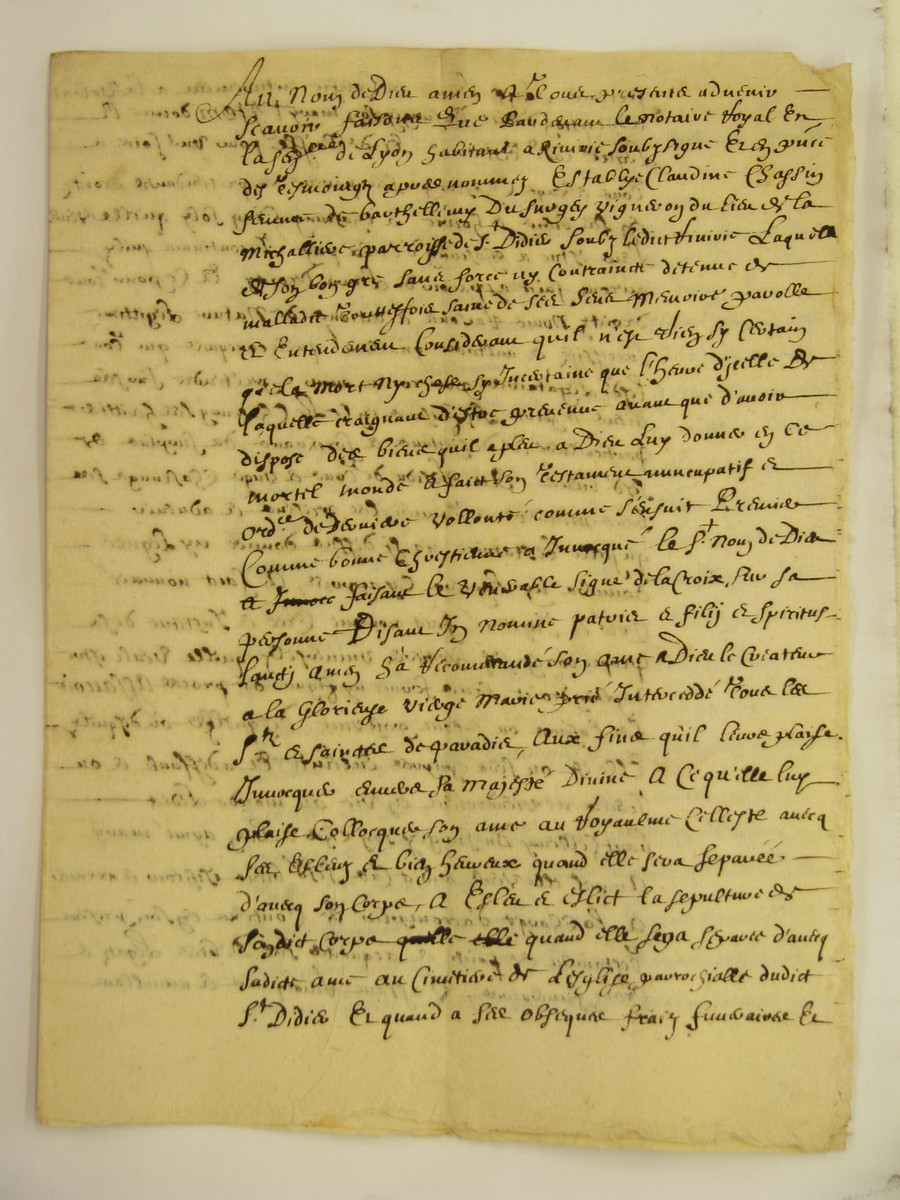 Au Nom de Dieu amen A tous presens advenir
Scavoir faisons Que Pardevant le notaire Royal En
la sen.ee de Lyon habitant a Riverie soubzsigne Et en pnce
des tesmoingz apres nommez Establye Claudine Chassin
femme de barthellemy Du surgey vigneron du lieu de la
Michalliere parroisse de St Didier soubz ledict Riverie Laquelle
de son bon gre sans force ny Contraincte detenue de
malladie touttesfois saine de ses sens Memoire parolle
et Entendement Considerant quil n'est Rien sy Certain
que la Mort Ny chose sy Incertaine que l'heure d'ycelle de
laquelle craignant d'estre prevenue avant que d'avoir
disposé des biens quil a pleu a Dieu Luy donner en Ce
mortel monde A faict son testament nuncupatif et
ord.ce de derniere vollonté comme s'ensuit Premier
Comme bonne Chrestienne a Invocqué le St Nom de Dieu
et faisant le Venerable signe de la Croix sur sa
personne Disant In nomine patris et filij et spiritus
sancti amen a Recommandé son ame A Dieu le Createur
a la Glorieuse vierge Marie prié Interceddé tous les
Sts et sainctes de paradis, Aux fins quil leurs plaise
Invocquer envers sa Majesté Divine A Ce qu'elle luy
plaise Collocquer son ame au Royaulme Celleste avecq
ses Esleuz et bien heureux quand elle sera separée
d'avecq son Corps, A Esleu et eslict la sepulture de
sondict Corps quand elle sera separee d'avecq
sadicte ame au Cimitiere de Lesglise parrochialle dudict
St Didier Et quand a ses obseques fraiz funeraires Et